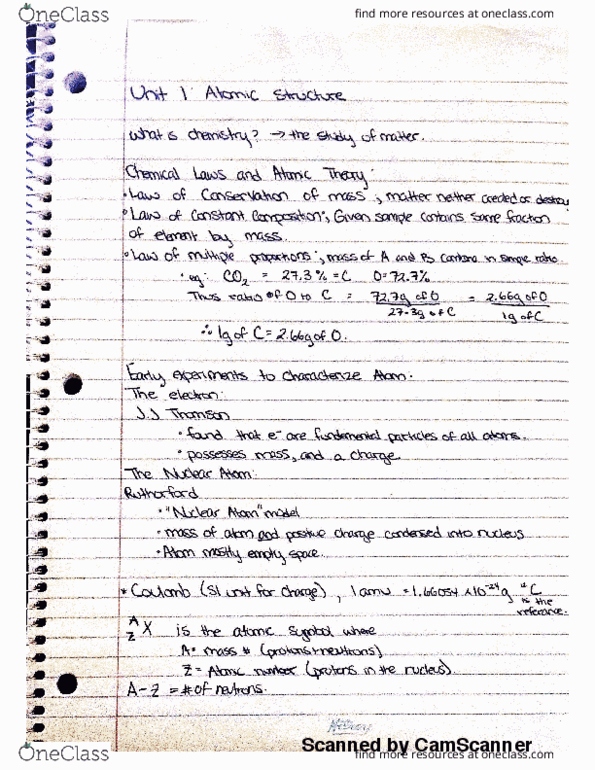 OneClass
find more resources at oneclass.com
Unit 1: Atomic Structure
What is chemistry? → the study of matter.
Chemical Laws and Atomic Theory:
• Law of Conservation of mass; matter neither created or destroy
• Law of Constant Composition; Given sample contains same fraction
of element by mass.
• Law of multiple proportions; mass of A and B combine in simple ratio.
• eg: CO2 = 27.3% = C O = 72.7%
Thus ratio of O to C = 72.7g of O / 27.3g of C = 2.66g of O / 1g of C
∴ 1g of C = 2.66g of O.
Early experiments to characterize Atom:
The electron:
J.J Thomson
• found that e- are fundamental particles of all atoms.
• possesses mass, and a charge
The Nuclear Atom:
Rutherford
• "Nuclear Atom" model
• mass of atom and positive charge condensed into nucleus
• Atom mostly empty space.
* Coulomb (SI unit for charge), 1 amu = 1.66054 x10^-24 g C is the reference.
A Z X is the atomic symbol where
A = mass # (protons+neutrons)
Z = Atomic number (protons in the nucleus).
A-Z = # of neutrons.
Scanned by CamScanner
OneClass
find more resources at oneclass.com